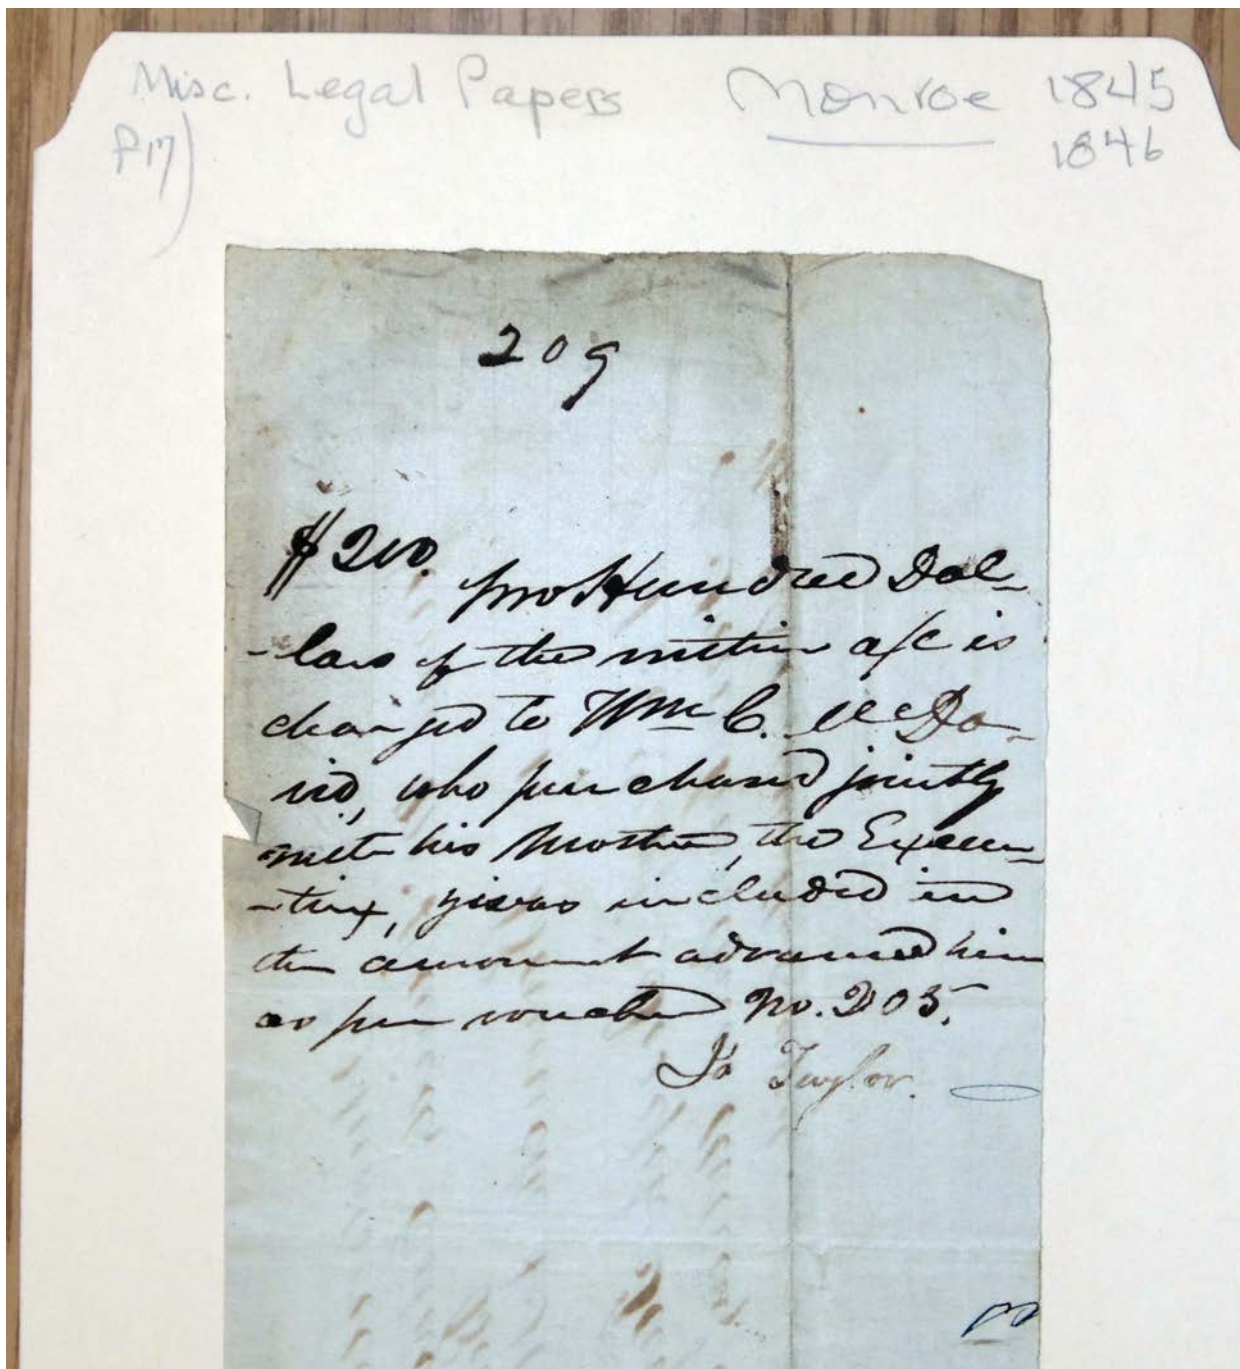 Misc. Legal Papers Monroe 1845
P17) 1846
209
$200.
Two Hundred Dol-
-lars of the within a/c is
charged to Wm C. McDa-
vid, who purchased jointly
with his Mother, the Execu-
-trix, & was included in
the amount advanced him
as per voucher No. 205.
Jo Taylor.